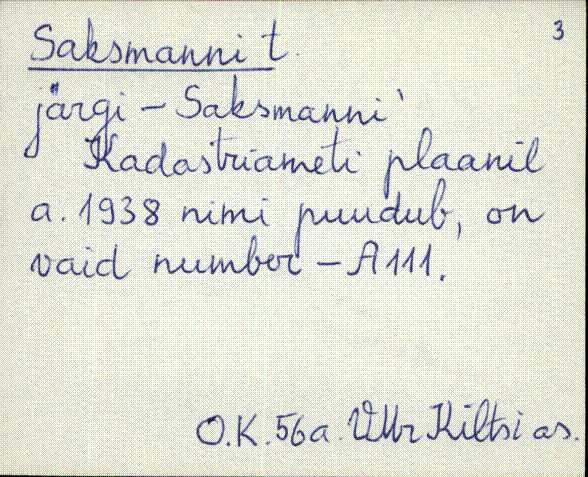 3
Saksmanni t.
järgi – Saksmanni'
Kadastriameti plaanil
a. 1938 nimi puudub, on
vaid number – A 111.
O.K. 56a. Kiltsi as.